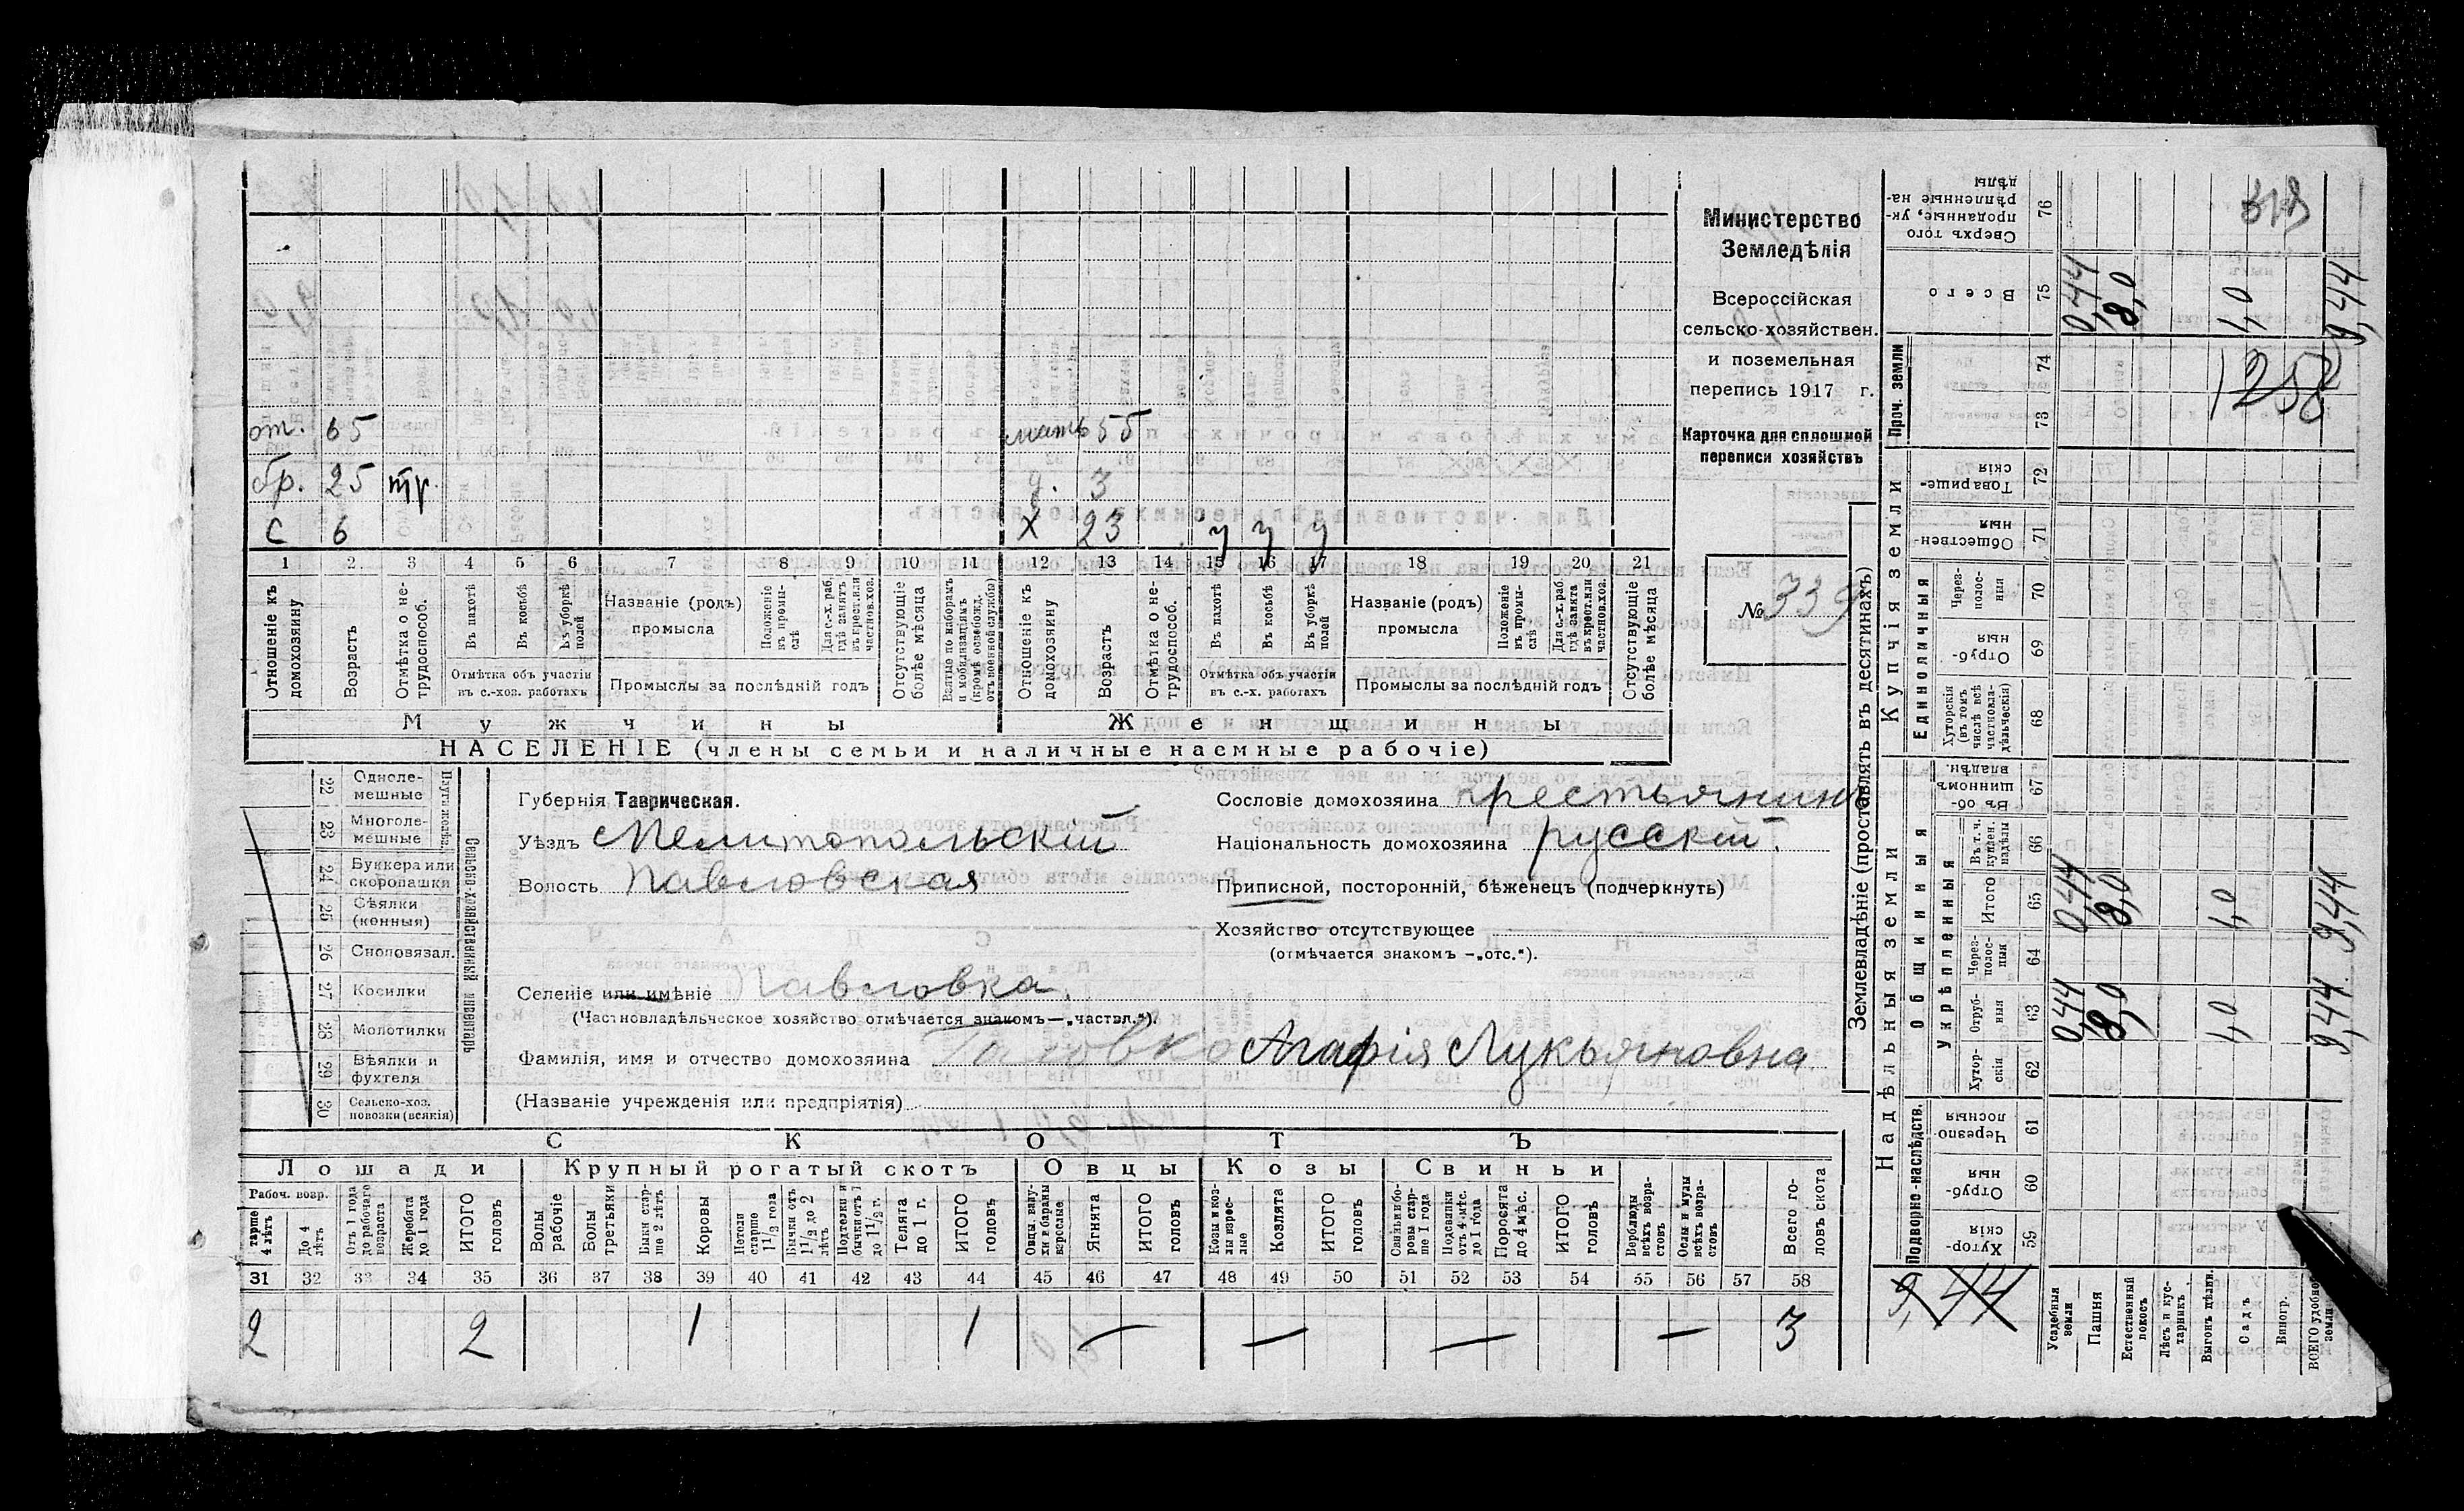 от. 65 мать 55
бр. 25 тр. д. 3
с 6 Х 23 у у у
1 2 3 4 5 6 7 8 9 10 11 12 13 14 15 16 17 18 19 20 21
Отношеніе къ домохозяину
Возрастъ
Отмѣтка о не-трудоспособ.
Въ пахотѣ
Въ косьбѣ
Въ уборкѣ полей
Отмѣтка объ участіи въ с.-хоз. работахъ
Названіе (родъ) промысла
Положеніе въ промы-слѣ
Для с.-х. раб. гдѣ занятъ въ крест. или частнов. хоз.
Промыслы за послѣдній годъ
Отсутствующіе болѣе мѣсяца
Взятые по наборамъ и мобилизаціямъ (кромѣ освобожд. отъ военной службы)
Отношеніе къ домохозяину
Возрастъ
Отмѣтка о не-трудоспособ.
Въ пахотѣ
Въ косьбѣ
Въ уборкѣ полей
Отмѣтка объ участіи въ с.-х. работахъ
Названіе (родъ) промысла
Положеніе въ промы-слѣ
Для с.-х. раб. гдѣ занята въ крест. или частнов. хоз.
Промыслы за послѣдній годъ
Отсутствующіе болѣе мѣсяца
Мужчины Женщины
НАСЕЛЕНІЕ (члены семьи и наличные наемные рабочіе)
Министерство
Земледѣлія
Всероссійская
сельско-хозяйствен.
и поземельная
перепись 1917 г.
Карточка для сплошной
переписи хозяйствъ
№ 339
Сельско-хозяйственный инвентарь
22 Одноле-мешные
23 Многоле-мешные
24 Буккера или скоропашки
25 Сѣялки (конныя)
26 Сноповязал.
27 Косилки
28 Молотилки
29 Вѣялки и фухтеля
30 Сельско-хоз. повозки (всякія)
Губернія Таврическая.
Уѣздъ Мелитопольскій
Волость Павловская
Сословіе домохозяина крестьянинъ
Національность домохозяина русскій.
Приписной, посторонній, бѣженецъ (подчеркнуть)
Хозяйство отсутствующее
(отмѣчается знакомъ -„отс.“).
Селеніе или имѣніе Павловка.
(Частновладѣльческое хозяйство отмѣчается знакомъ—„частвл.“).
Фамилія, имя и отчество домохозяина Головко Агафія Лукьяновна.
(Названіе учрежденія или предпріятія)
СКОТЪ
Лошади Крупный рогатый скотъ Овцы Козы Свиньи
Рабоч. возр.
старше 4 лѣтъ
До 4 лѣтъ
Отъ 1 года до рабочаго возраста
Жеребята до 1 года
ИТОГО головъ
Волы рабочіе
Волы третьяки
Быки стар-ше 2 лѣтъ
Коровы
Нетели старше 1 1/2 года
Бычки отъ 1 1/2 до 2 лѣтъ
Подтелки и бычки отъ 1 до 1 1/2 г.
Телята до 1 г.
ИТОГО головъ
Овцы, валу-хи и бараны взрослые
Ягнята
ИТОГО головъ
Козы и коз-лы взрос-лые
Козлята
ИТОГО головъ
Свиньи и бо-ровы стар-ше 1 года
Подсвинки отъ 4 мѣс. до 1 года
Поросята до 4 мѣс.
ИТОГО головъ
Верблюды всѣхъ возра-стовъ
Ослы и мулы всѣхъ возра-стовъ
Всего го-ловъ скота
31 32 33 34 35 36 37 38 39 40 41 42 43 44 45 46 47 48 49 50 51 52 53 54 55 56 57 58
2 2 1 1 — — — — 3
Землевладѣніе (проставлять въ десятинахъ)
Надѣльныя земли
Купчія земли
Подворно-наслѣдств.
Общинныя
Укрѣпленныя
Единоличныя
Проч. земли
59 Хутор-скія
60 Отруб-ныя
61 Черезпо-лосныя
62 Хутор-скія
63 Отруб-ныя 0,44 8,0 1,0 9,44
64 Через-полос-ныя
65 Итого 0,44 8,0 1,0 9,44
66 Въ т. ч. куплен. надѣлы
67 Въ об-щинномъ владѣн.
68 Хуторскія (въ томъ числѣ всѣ частновла-дѣльческія)
69 Отруб-ныя
70 Через-полос-ныя
71 Обществен-ныя
72 Товарище-скія
73
74
75 Всего 0,44 8,0 1,0 9,44
76 Сверхъ того проданные, ук-рѣпленные на-дѣлы
318
1258
9,44
Усадебныя земли
Пашня
Естественный покосъ
Лѣсъ и кус-тарникъ
Выгонъ цѣлин.
Садъ
Виногр.
ВСЕГО удобной земли